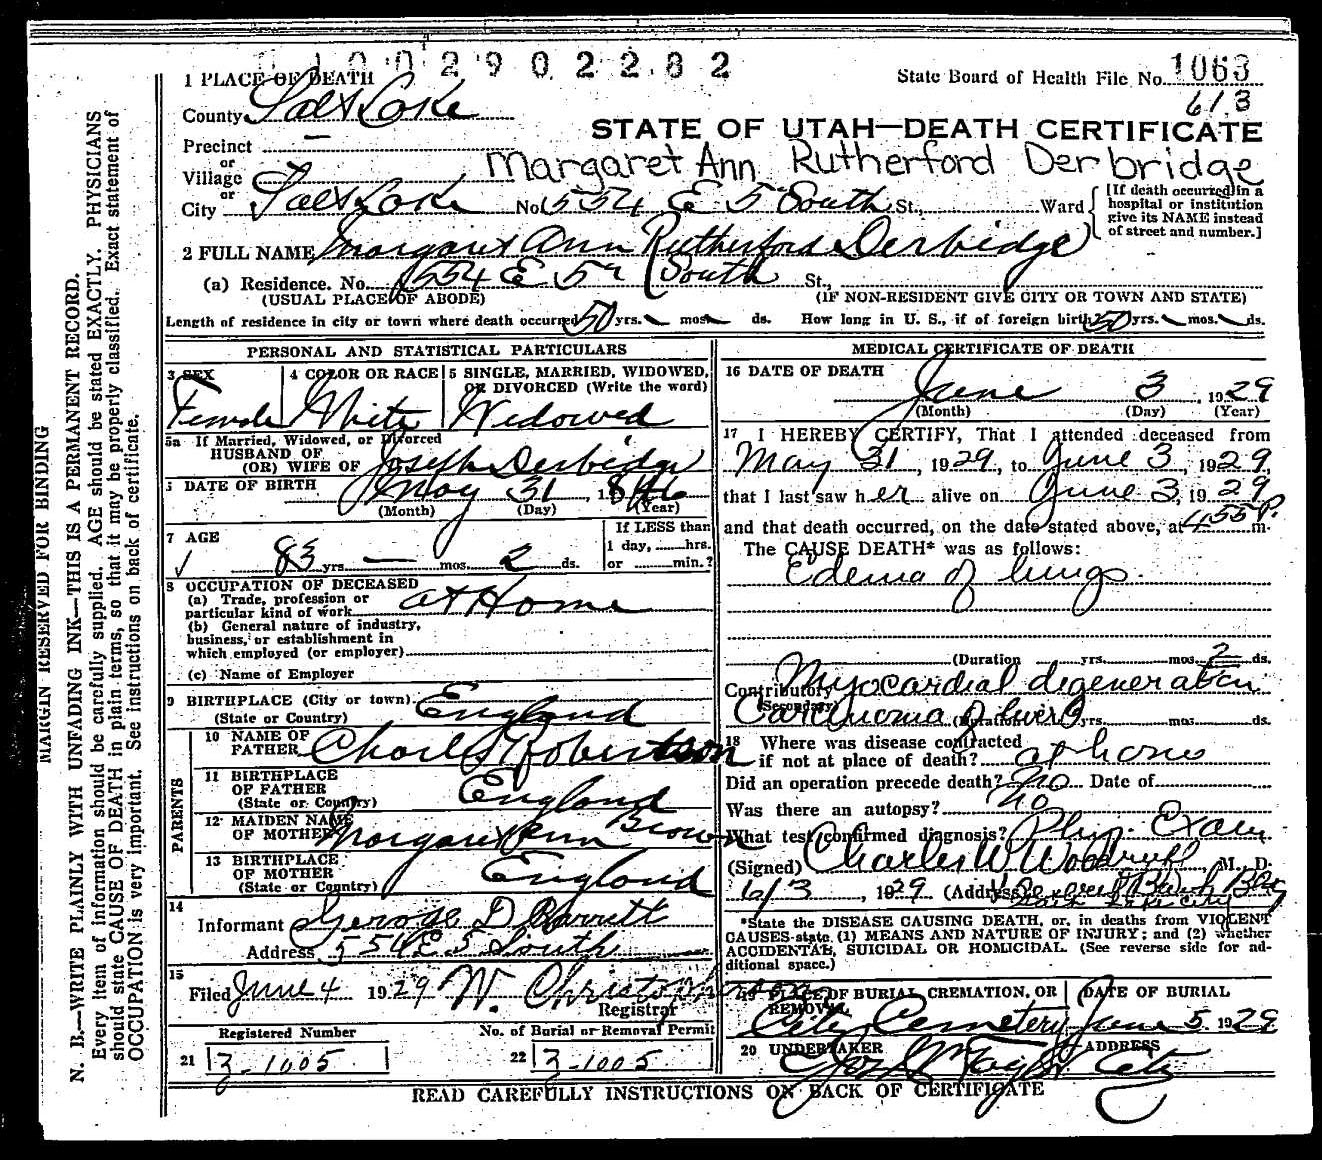 1002902282
1 PLACE OF DEATH
State Board of Health File No. 1063
County Salt Lake
613
STATE OF UTAH—DEATH CERTIFICATE
Precinct —
Margaret Ann Rutherford Derbridge
or
Village
or
City Salt Lake No. 554 E 5th South St., Ward
[If death occurred in a hospital or institution give its NAME instead of street and number.]
2 FULL NAME Margaret Ann Rutherford Derbidge
(a) Residence. No. 554 E 5th South St.,
(USUAL PLACE OF ABODE) (IF NON-RESIDENT GIVE CITY OR TOWN AND STATE)
Length of residence in city or town where death occurred 50 yrs. mos. ds. How long in U. S., if of foreign birth? 50 yrs. mos. ds.
PERSONAL AND STATISTICAL PARTICULARS
3 SEX
Female
4 COLOR OR RACE
White
5 SINGLE, MARRIED, WIDOWED, OR DIVORCED (Write the word)
Widowed
5a If Married, Widowed, or Divorced
HUSBAND OF
(OR) WIFE OF Joseph Derbidge
DATE OF BIRTH May 31, 1846
(Month) (Day) (Year)
7 AGE
83 yrs. — mos. 2 ds.
If LESS than
1 day, hrs.
or min.?
8 OCCUPATION OF DECEASED
(a) Trade, profession or
particular kind of work at Home
(b) General nature of industry,
business, or establishment in
which employed (or employer)
(c) Name of Employer
9 BIRTHPLACE (City or town) England
(State or Country)
PARENTS
10 NAME OF
FATHER Charles Robertson
11 BIRTHPLACE
OF FATHER England
(State or Country)
12 MAIDEN NAME
OF MOTHER Margaret Ann Brown
13 BIRTHPLACE
OF MOTHER England
(State or Country)
14
Informant D Barrett
Address 554 E 5 South
15
Filed June 4 1929 W. Christopherson
Registrar
Registered Number
21 3-1005
No. of Burial or Removal Permit
22 3-1005
MEDICAL CERTIFICATE OF DEATH
16 DATE OF DEATH
June 3, 1929
(Month) (Day) (Year)
17 I HEREBY CERTIFY, That I attended deceased from
May 31, 1929, to June 3, 1929,
that I last saw her alive on June 3, 1929
and that death occurred, on the date stated above, at 455 P. m.
The CAUSE DEATH* was as follows:
Edema of lungs.
(Duration yrs. mos. 2 ds.
Contributory Myocardial degeneration
(Secondary)
Carcinoma of liver (Duration) yrs. mos. ds.
18 Where was disease contracted
if not at place of death? at home
Did an operation precede death? No Date of
Was there an autopsy? No
What test confirmed diagnosis? Phys. Exam
(Signed) Charles W Woodruff M. D.
6/3, 1929 (Address)
*State the DISEASE CAUSING DEATH, or, in deaths from VIOLENT
CAUSES state (1) MEANS AND NATURE OF INJURY; and (2) whether
ACCIDENTAL, SUICIDAL OR HOMICIDAL. (See reverse side for ad-
ditional space.)
19 PLACE OF BURIAL, CREMATION, OR
REMOVAL
City Cemetery
DATE OF BURIAL
June 5, 1929
20 UNDERTAKER
Jos Taylor
ADDRESS
City
READ CAREFULLY INSTRUCTIONS ON BACK OF CERTIFICATE
MARGIN RESERVED FOR BINDING
N. B.—WRITE PLAINLY WITH UNFADING INK—THIS IS A PERMANENT RECORD.
Every item of information should be carefully supplied. AGE should be stated EXACTLY. PHYSICIANS
should state CAUSE OF DEATH in plain terms, so that it may be properly classified. Exact statement of
OCCUPATION is very important. See instructions on back of certificate.